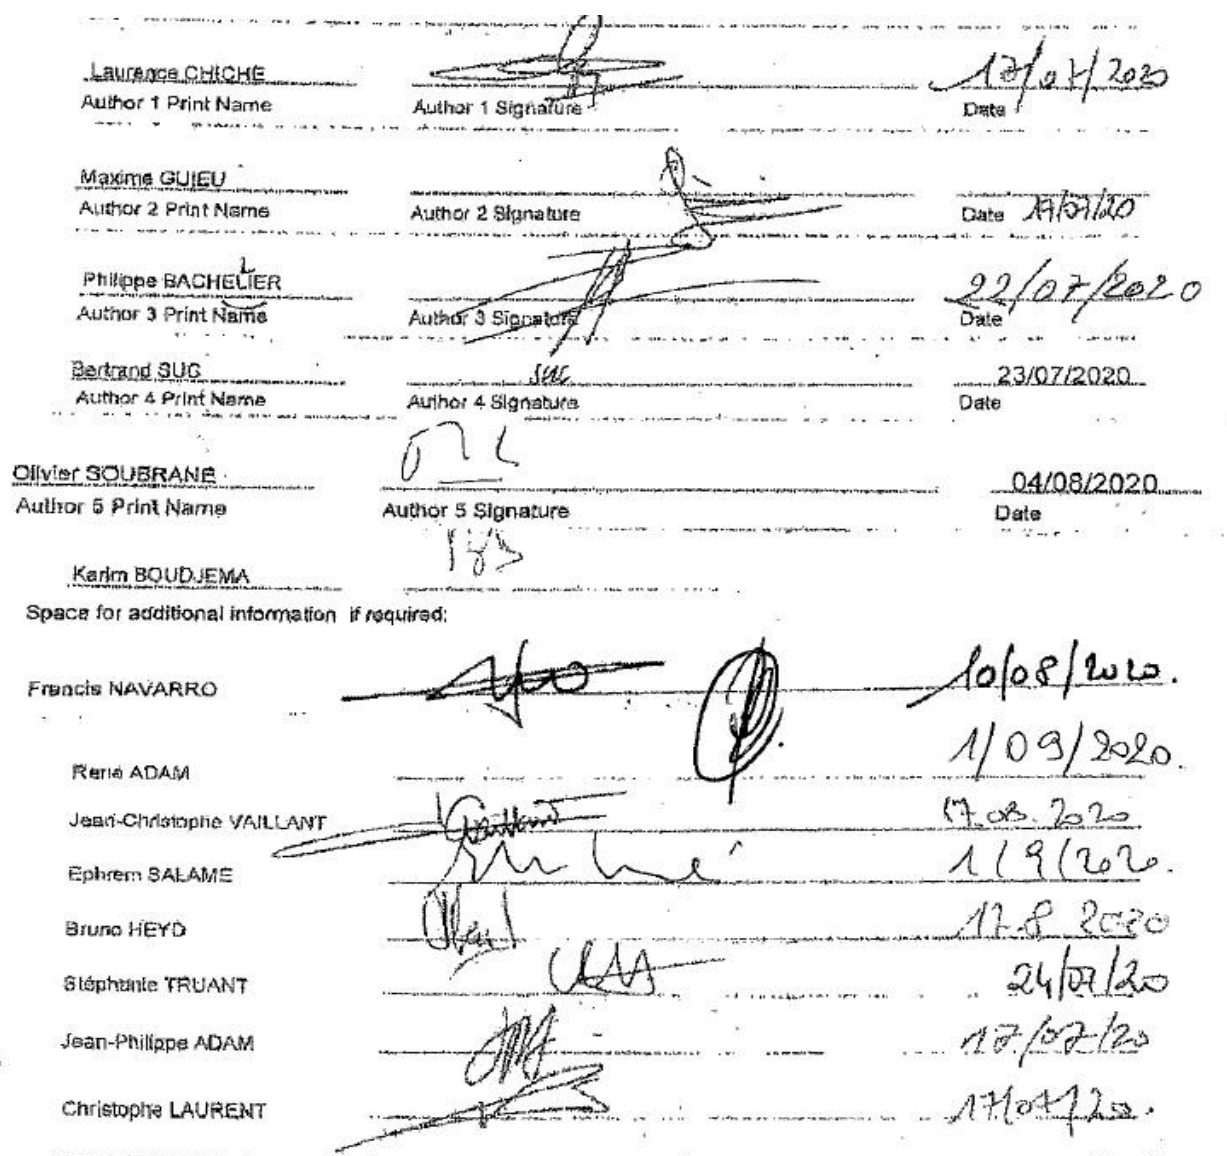 Laurence CHICHE 17/07/2020
Author 1 Print Name Author 1 Signature Date
Maxime GUIEU
Author 2 Print Name Author 2 Signature Date 17/07/20
Philippe BACHELLIER 22/07/2020
Author 3 Print Name Author 3 Signature Date
Bertrand SUC suc 23/07/2020
Author 4 Print Name Author 4 Signature Date
Olivier SOUBRANE 04/08/2020
Author 5 Print Name Author 5 Signature Date
Karim BOUDJEMA
Space for additional information if required:
Francis NAVARRO 10/08/2020.
René ADAM 1/09/2020.
Jean-Christophe VAILLANT Vaillant 17.08.2020
Ephrem SALAME 1/9/2020
Bruno HEYD 17.8 2020
Stéphanie TRUANT 24/07/20
Jean-Philippe ADAM 17/07/20
Christophe LAURENT 17/07/20.